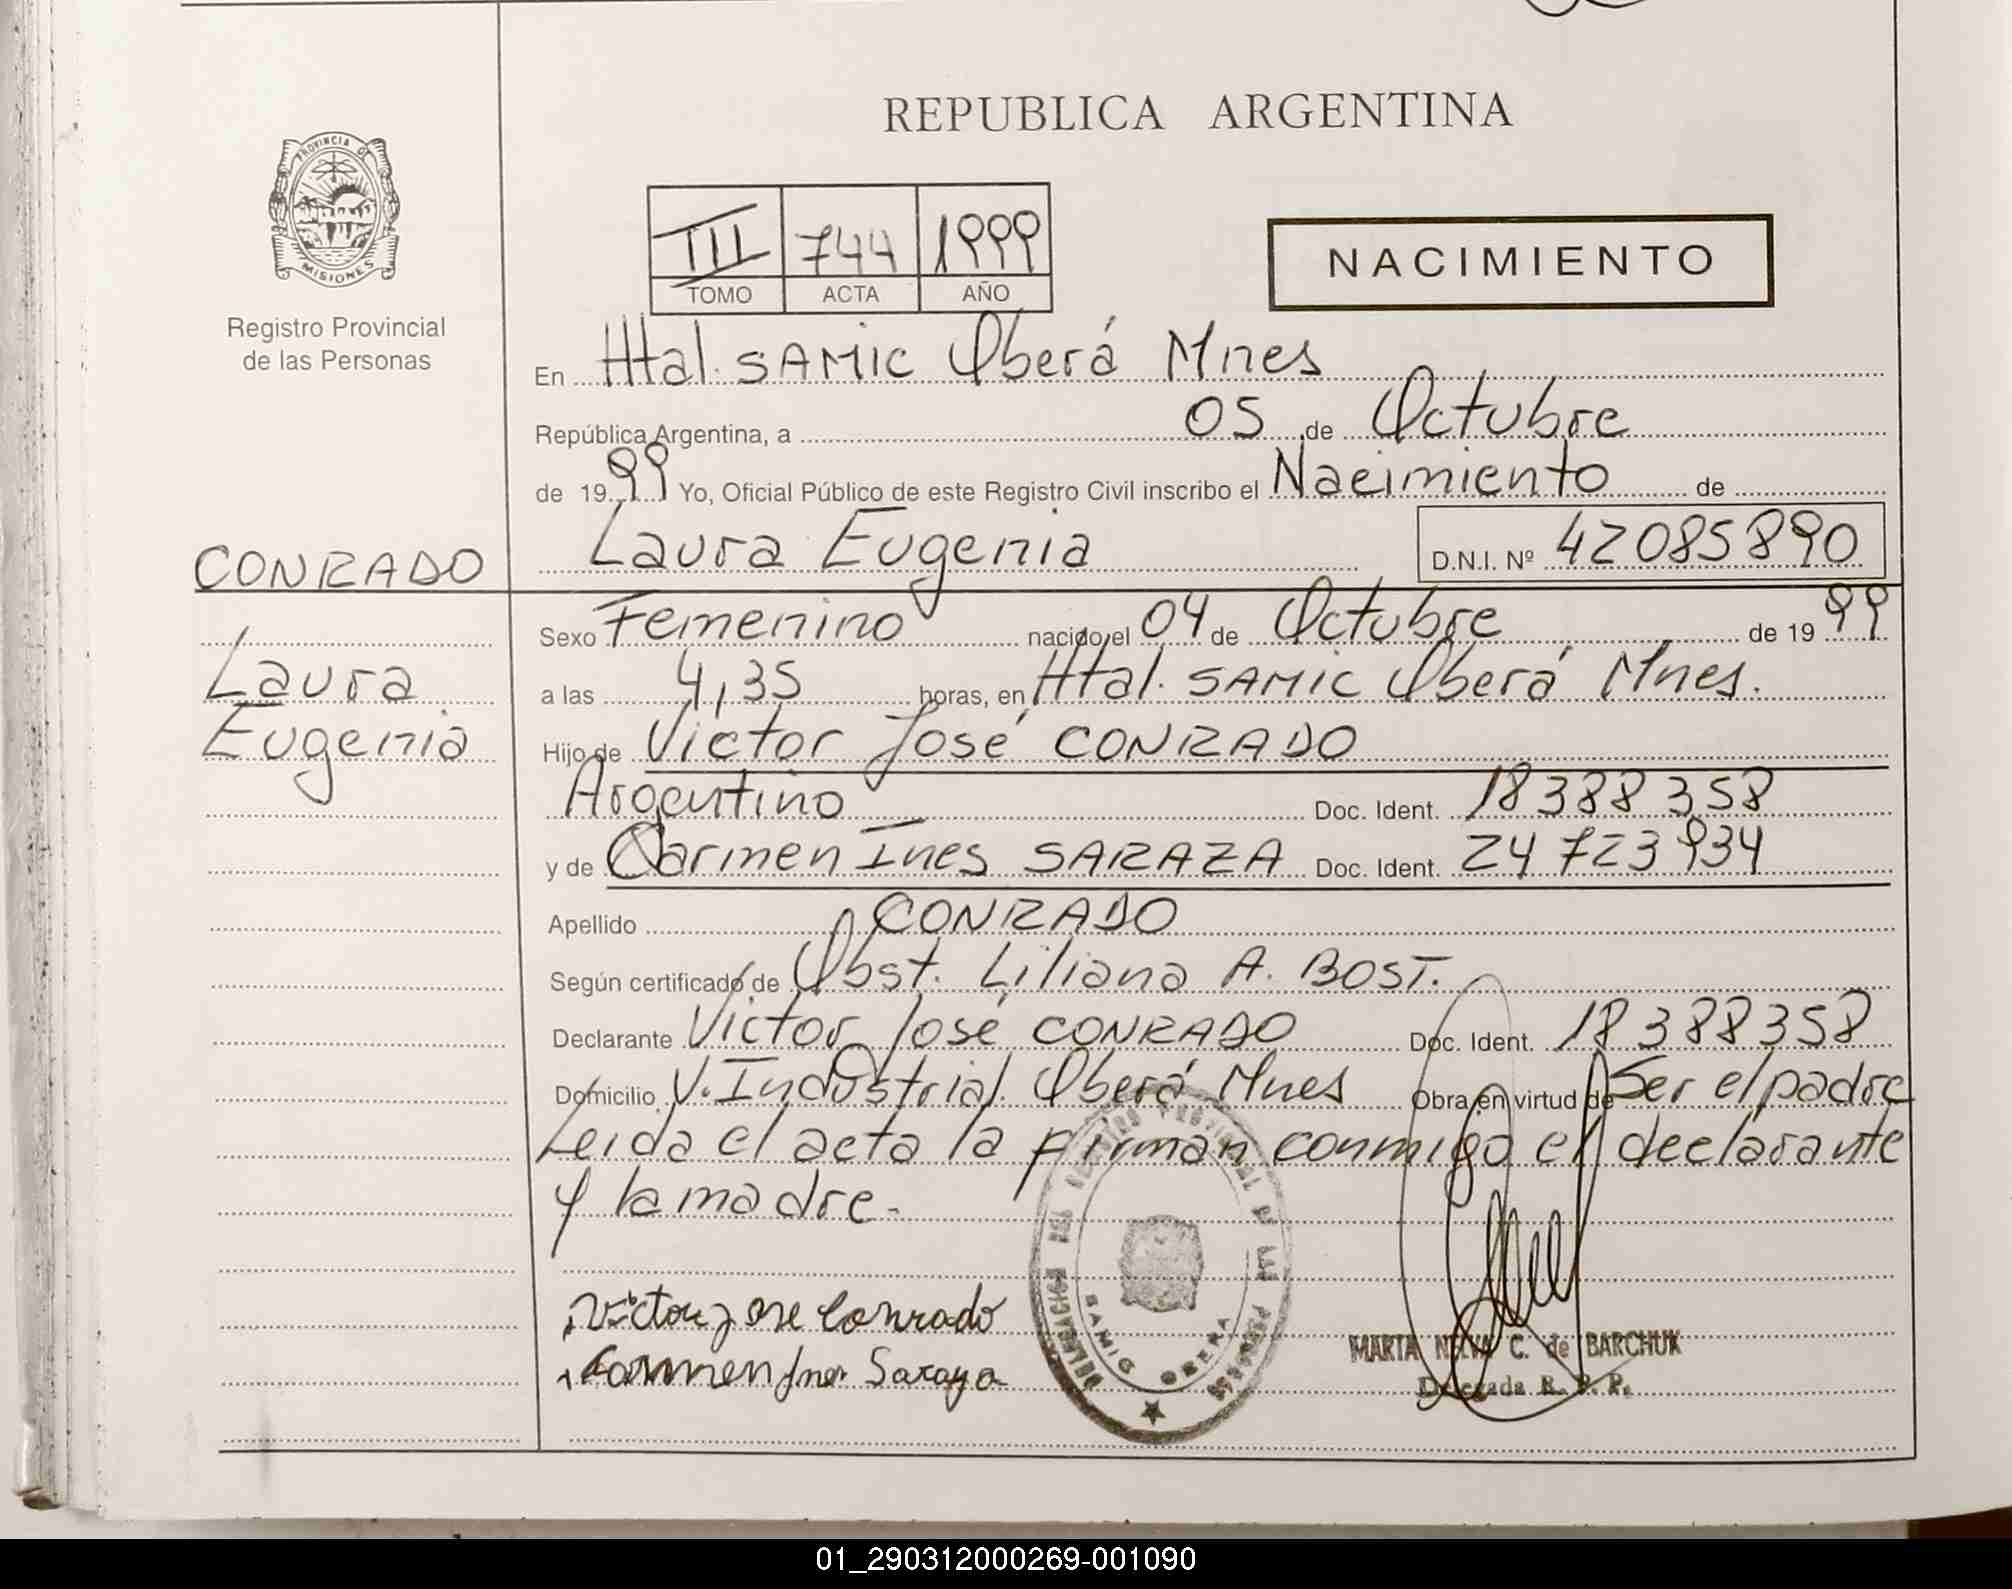 REPUBLICA ARGENTINA
PROVINCIA DE
MISIONES
Registro Provincial
de las Personas
III 744 1999
TOMO ACTA AÑO
NACIMIENTO
En Htal. SAMIC Oberá Mnes
República Argentina, a 05 de Octubre
de 1999 Yo, Oficial Público de este Registro Civil inscribo el Nacimiento de
Laura Eugenia D.N.I. Nº 42085890
CONRADO
Laura
Eugenia
Sexo Femenino nacido el 04 de Octubre de 1999
a las 4,35 horas, en Htal. SAMIC Oberá Mnes.
Hijo de Victor José CONRADO
Argentino Doc. Ident. 18388358
y de Carmen Ines SARAZA Doc. Ident. 24723934
Apellido CONRADO
Según certificado de Obst. Liliana A. BOST.
Declarante Victor José CONRADO Doc. Ident. 18388358
Domicilio V. Industrial Oberá Mnes Obra en virtud de Ser el padre
Leida el acta la firman conmigo el declarante
y la madre.-
Victor Jose Conrado
Carmen Ines Saraza
DELEGACION DEL REGISTRO PROVINCIAL DE LAS PERSONAS
SAMIC OBERA
MARTA NELVA C. de BARCHUK
Delegada R. P. P.
01_290312000269-001090